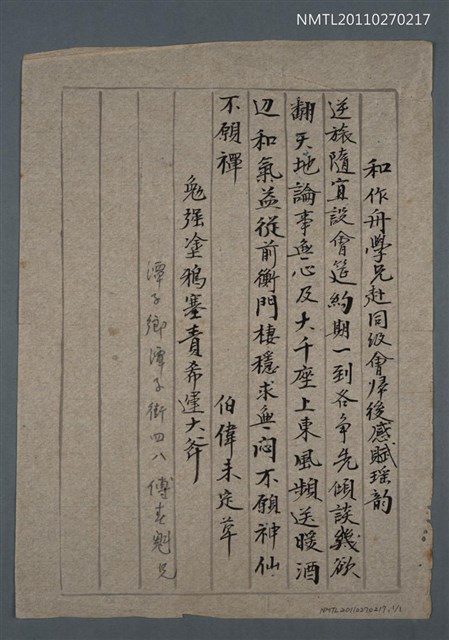 NMTL20110270217
和作舟學兄赴同級會歸後感賦瑤韵
逆旅隨宜設會筵約期一到各争先傾談幾欲
翻天地論事無心及大千座上東風頻送暖酒
边和氣益從前衡門棲穩求無悶不願神仙
不願禪
伯偉未定草
勉强塗鴉塞責希運大斧
潭子鄉潭子街四八 傅春魁兄
NMTL20110270217 1/1